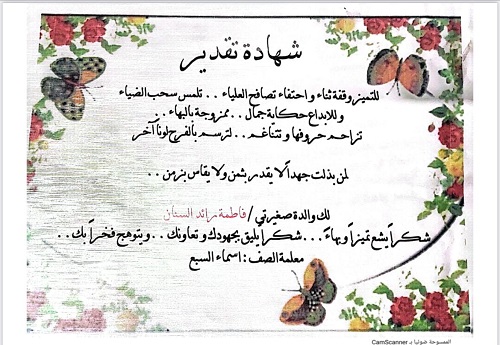 شهادة تقدير
للتميز وقفة ثناء واحتفاء تصافح العلياء .. تلمس سحب الضياء
وللإبداع حكاية جمال .. ممزوجة بالبهاء ..
تزاحم حروفها وتتناغم .. لترسم بالفرح لوناً آخر
لمن بذلت جهداً لا يقدر بثمن ولا يقاس بزمن ..
لك والدة صغيرتي / فاطمة رائد السنان
شكراً يشع تميزاً وبهاءً ... شكراً يليق بجهودك وتعاونك .. ويتوهج فخراً بك ..
معلمة الصف : اسماء السبع
الممسوحة ضوئيا بـ CamScanner